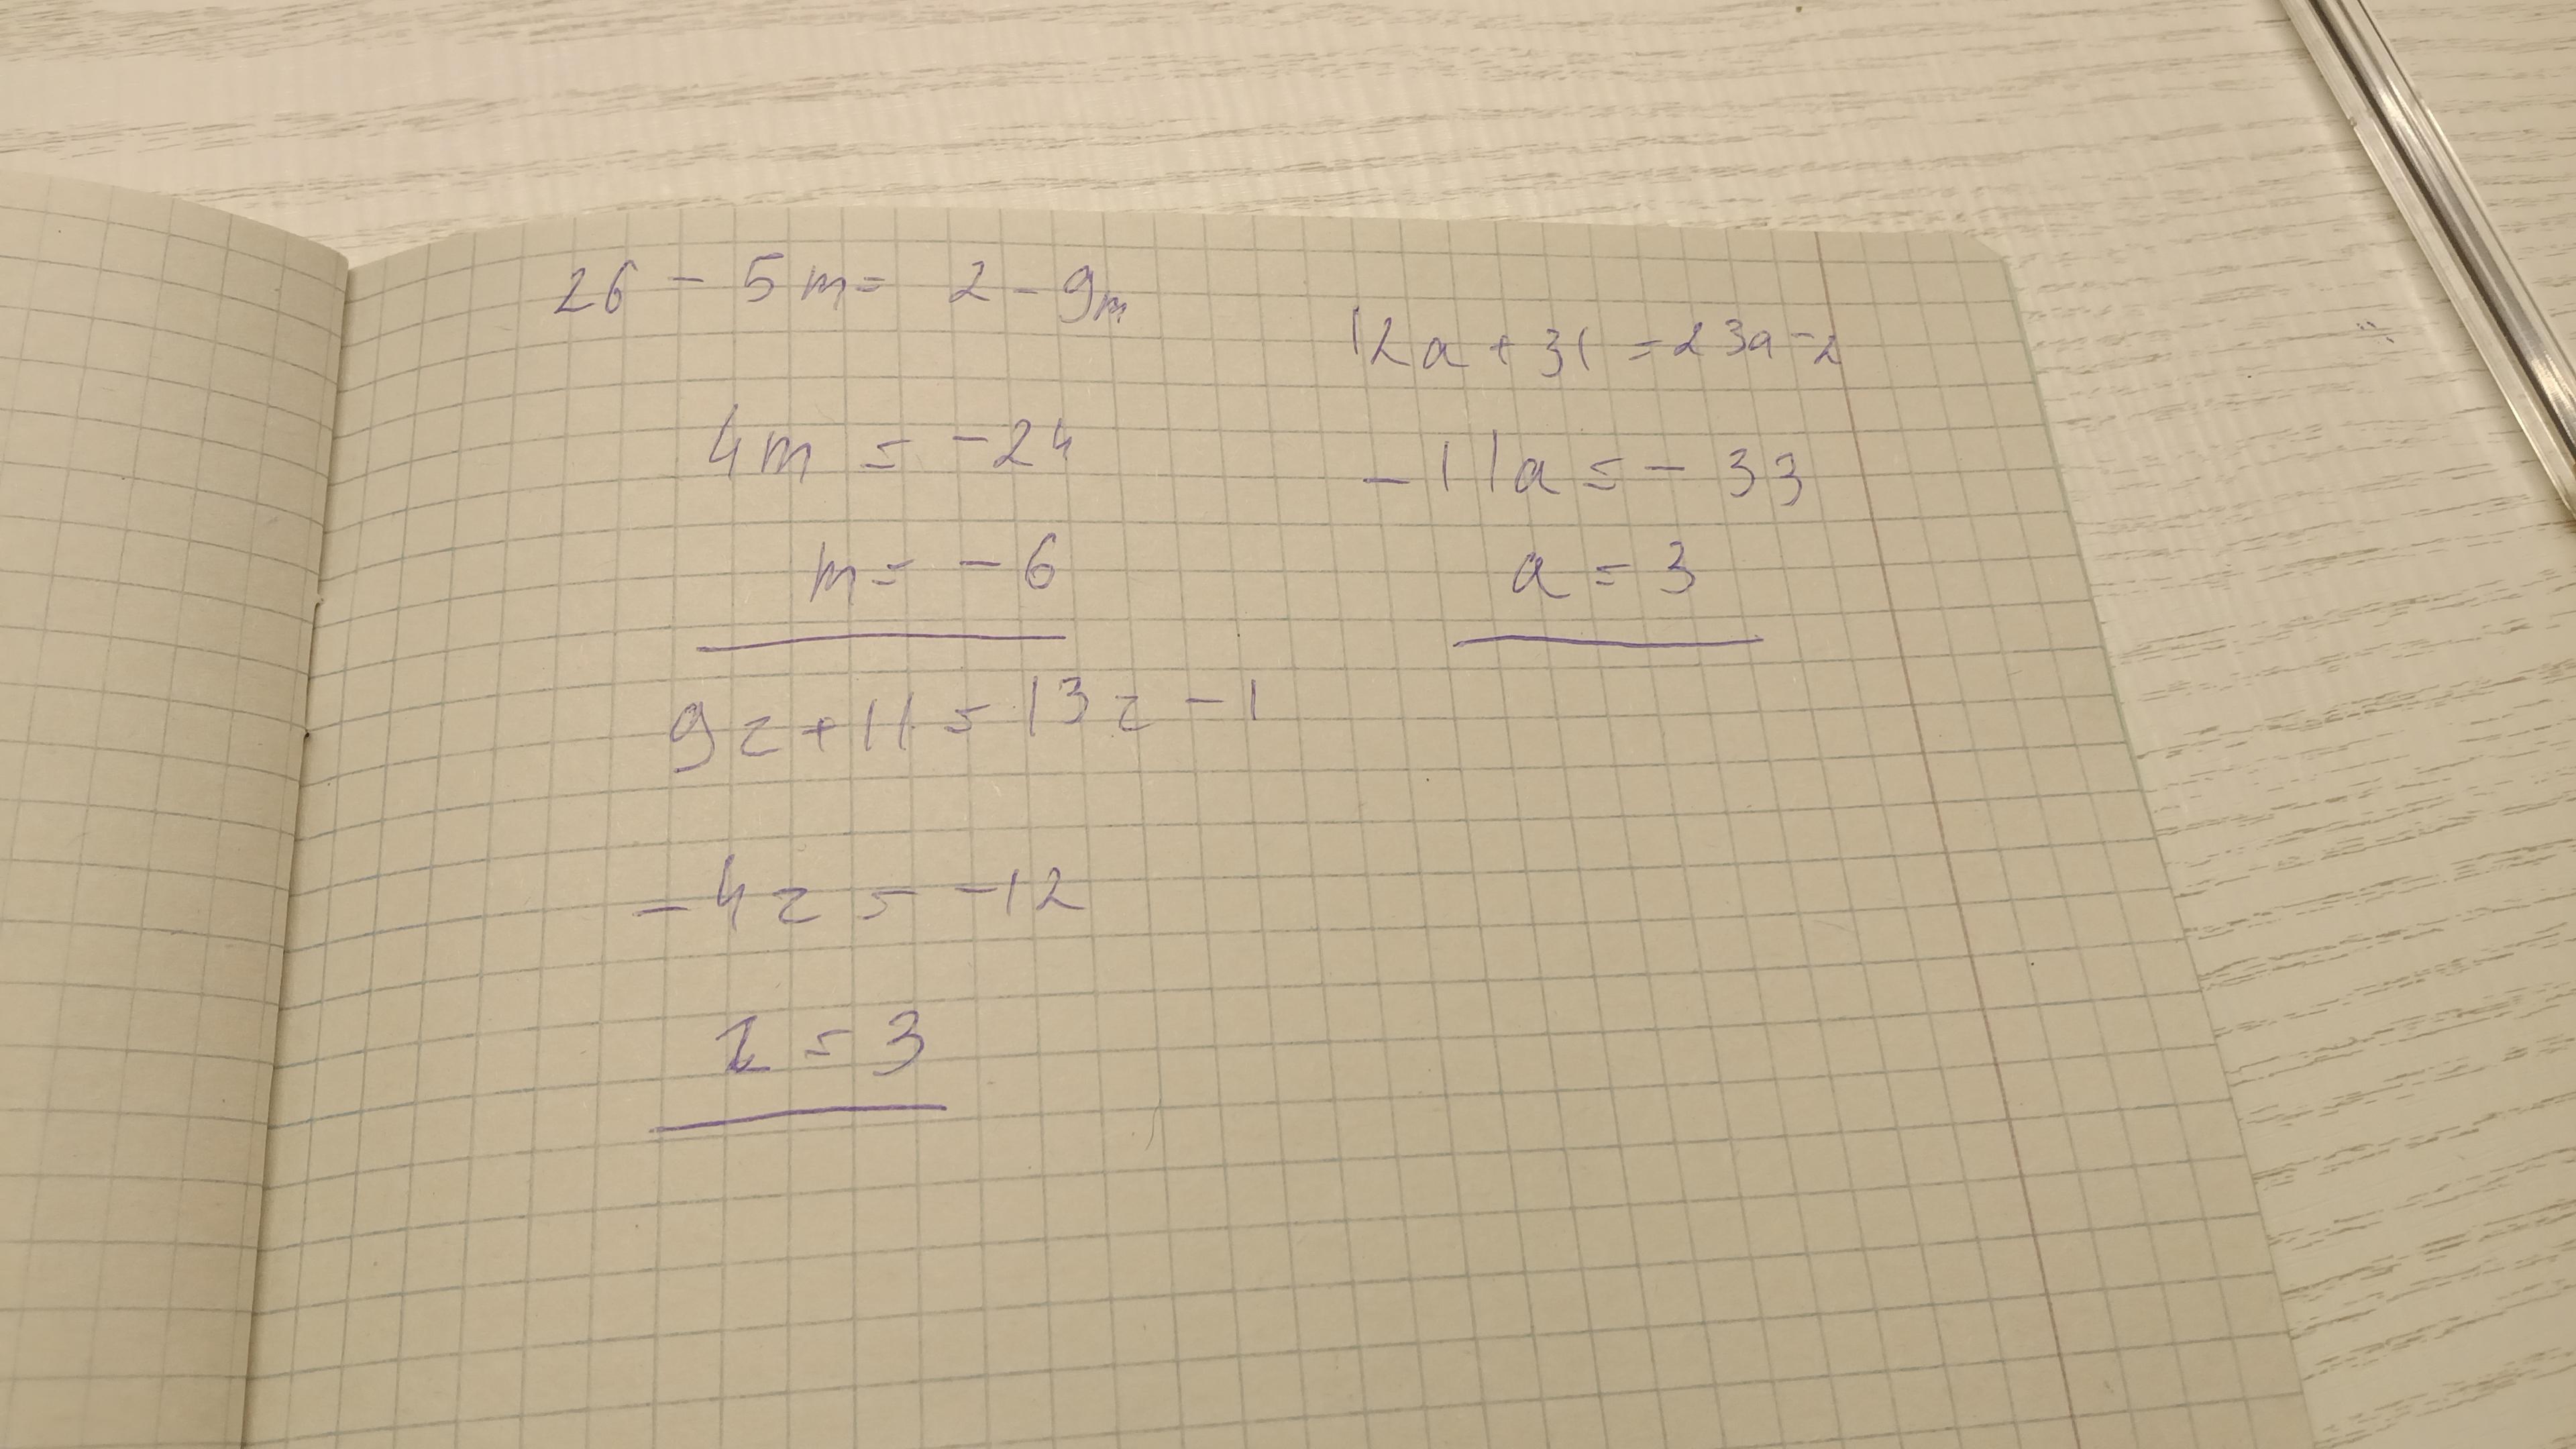 26 - 5m = 2 - 9m
4m = -24
m = -6
12a + 31 = 23a - 2
-11a = -33
a = 3
9z + 11 = 13z - 1
-4z = -12
z = 3